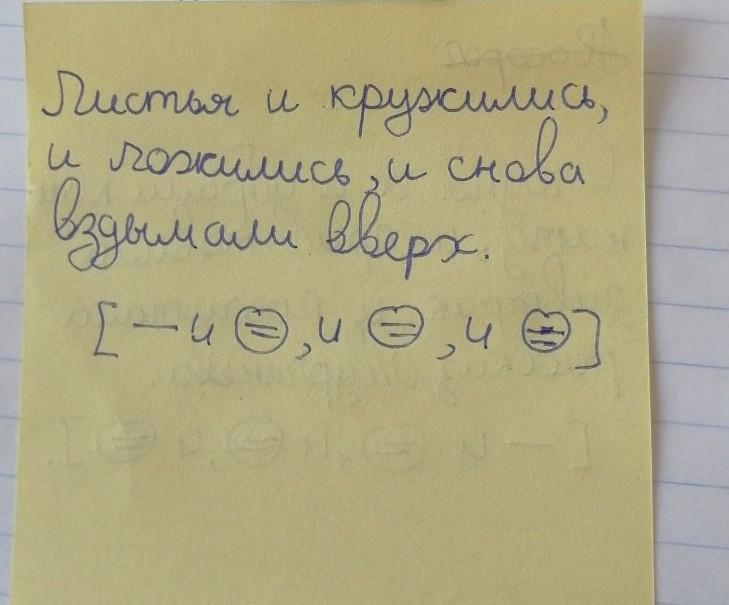 Листья и кружились,
и ложились, и снова
вздымали вверх.
[— и =, и =, и =]